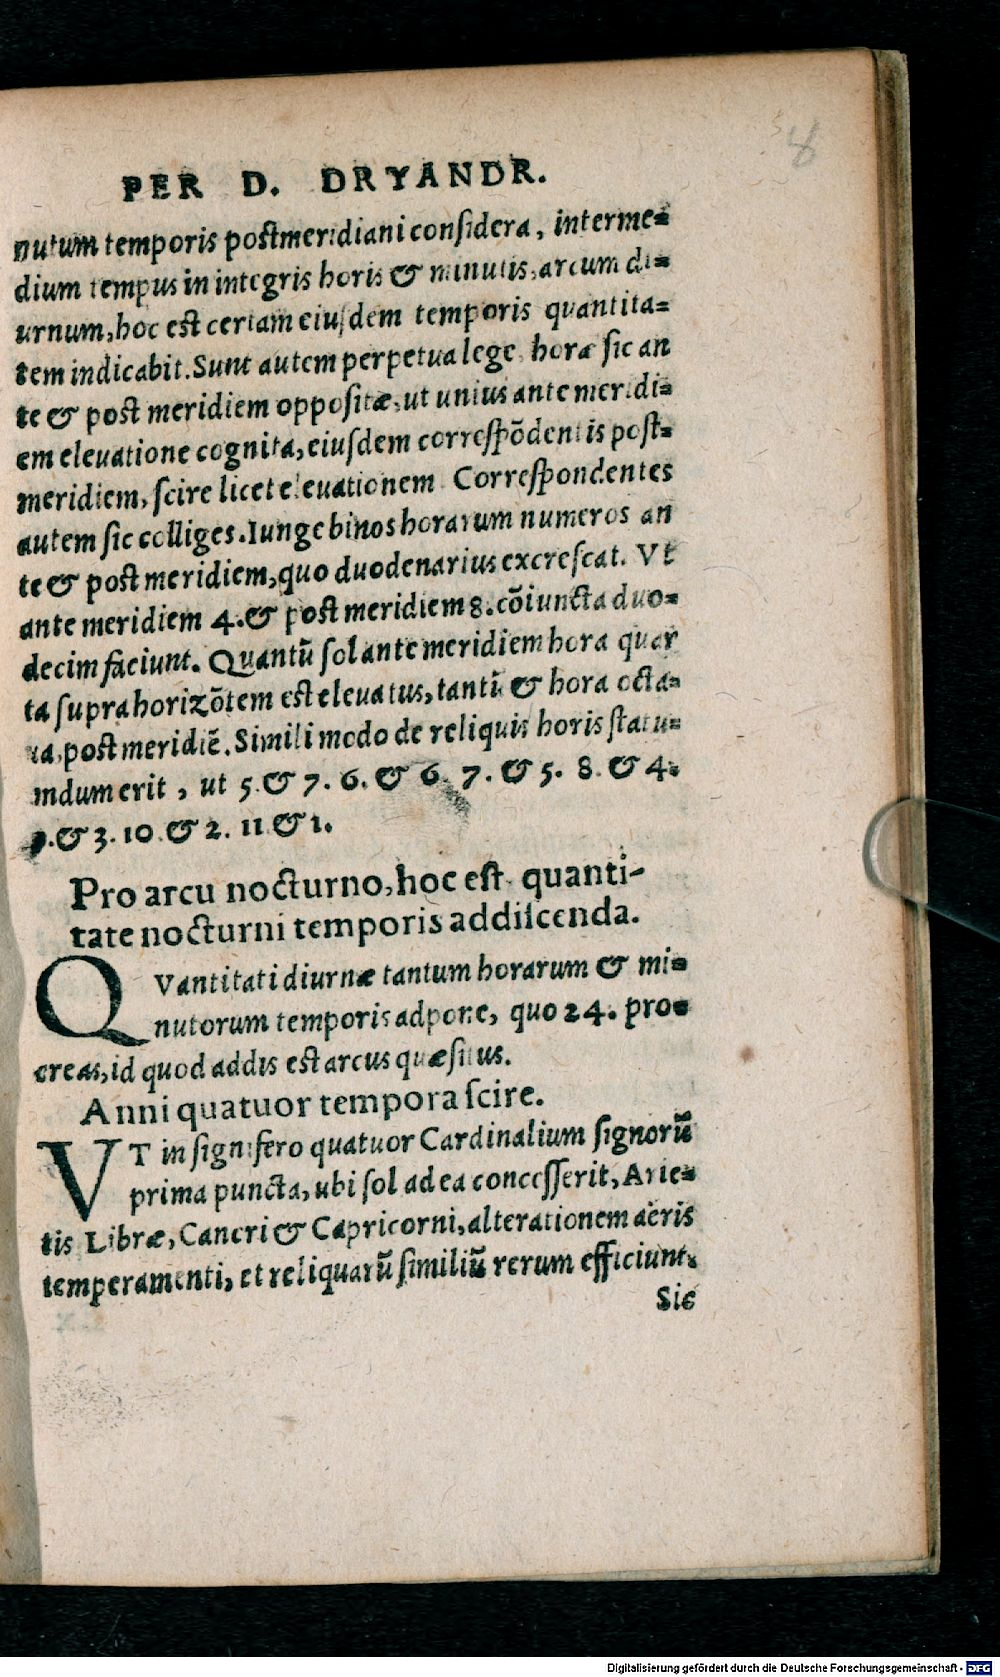 8
PER D. DRYANDR.
nutum temporis postmeridiani considera, interme=
dium tempus in integris horis & minutis, arcum di=
urnum, hoc est certam eiusdem temporis quantita=
tem indicabit. Sunt autem perpetua lege, horæ sic an
te & post meridiem oppositæ, ut unius ante meridi=
em eleuatione cognita, eiusdem correspõdentis post=
meridiem, scire licet eleuationem. Correspondentes
autem sic colliges. Iunge binos horarum numeros an
te & post meridiem, quo duodenarius excrescat. Vt
ante meridiem 4. & post meridiem 8. cõiuncta duo=
decim faciunt. Quantũ sol ante meridiem hora quar
ta supra horizõtem est eleuatus, tantũ & hora octa=
ua, post meridiẽ. Simili modo de reliquis horis statu=
indum erit, ut 5. & 7. 6. & 6. 7. & 5. 8. & 4.
9. & 3. 10. & 2. 11. & 1.
Pro arcu nocturno, hoc est quanti-
tate nocturni temporis addiscenda.
QVantitati diurnæ tantum horarum & mi=
nutorum temporis adpone, quo 24. pro=
creas, id quod addis est arcus quæsitus.
Anni quatuor tempora scire.
VT in signifero quatuor Cardinalium signorũ
prima puncta, ubi sol ad ea concesserit, Arie=
tis Libræ, Cancri & Capricorni, alterationem aëris
temperamenti, et reliquarũ similiũ rerum efficiunt.
Sic
Digitalisierung gefördert durch die Deutsche Forschungsgemeinschaft - DFG